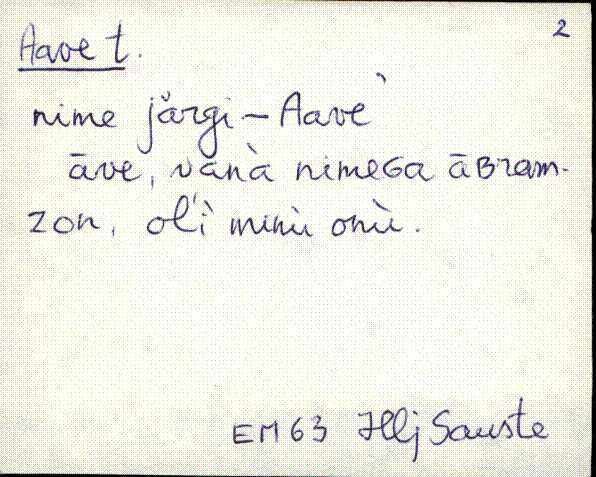 2
Aave t.
nime järgi – Aave`
āve, vanà nimeGa āBram-
zon, ol'ì minù onù.
EM 63 Hlj Sauste